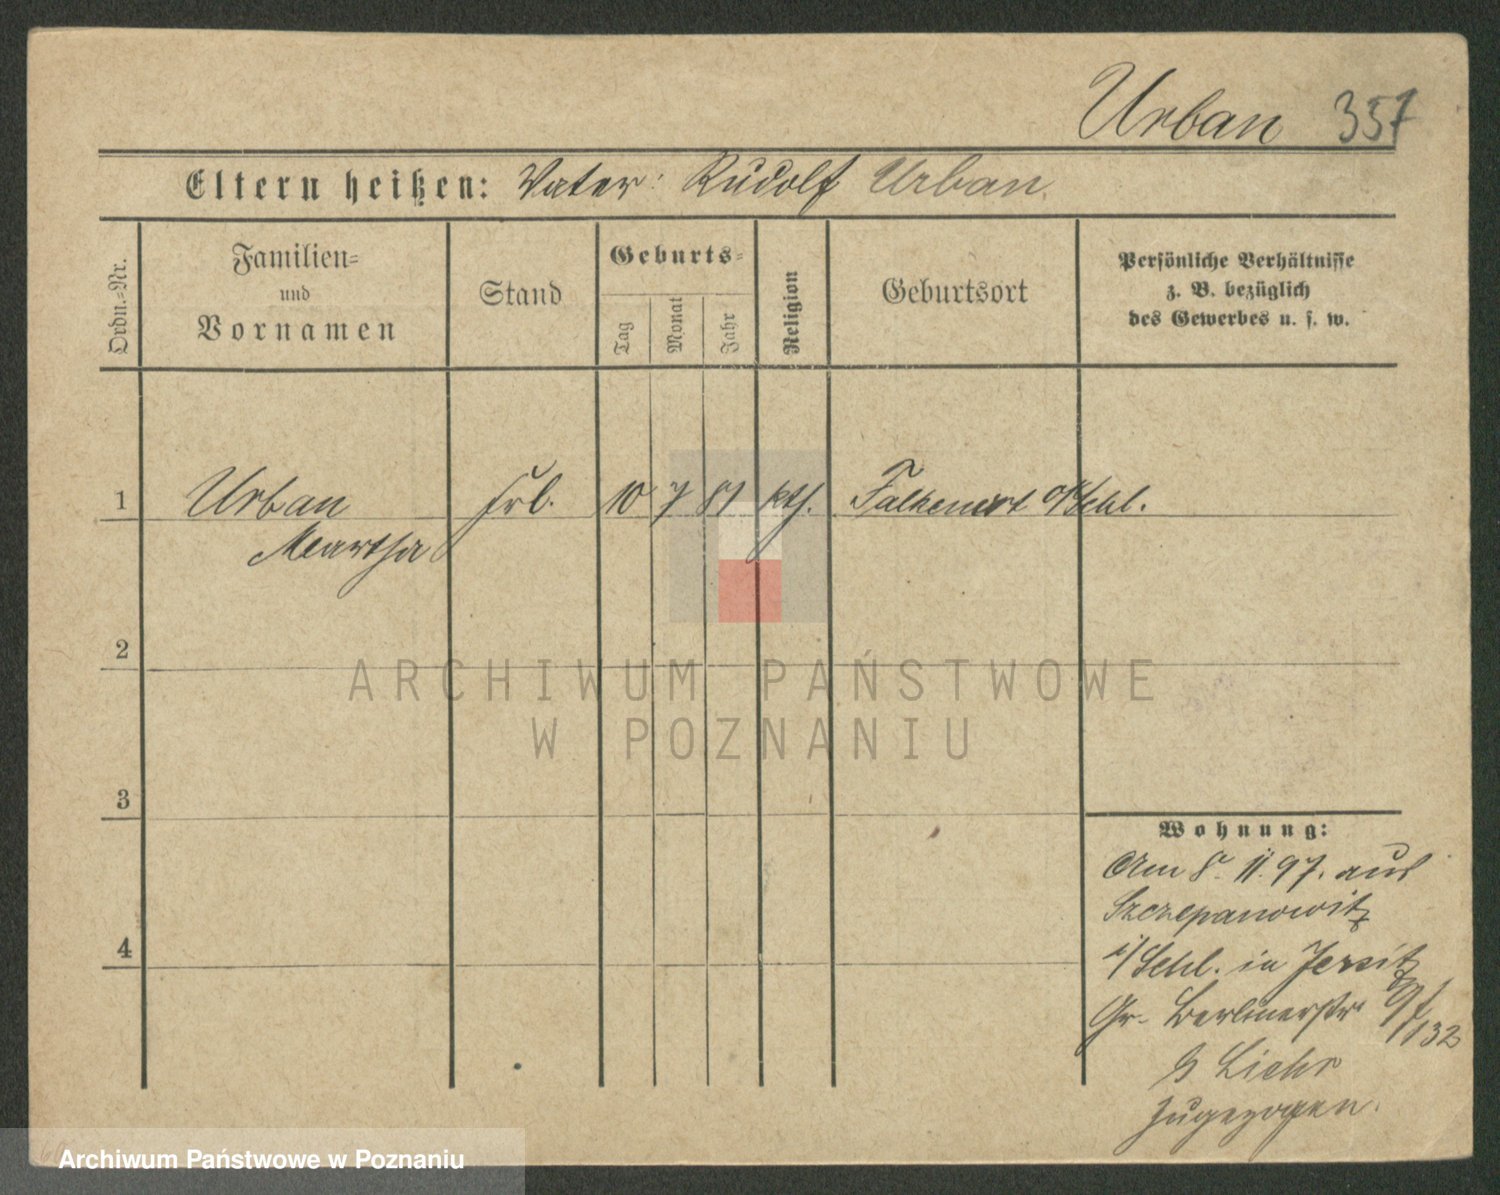 Urban 357
Eltern heißen: Vater: Rudolf Urban.
Ordn.=Nr.
Familien=
und
Vornamen
Stand
Geburts=
Tag
Monat
Jahr
Religion
Geburtsort
Persönliche Verhältnisse
z. B. bezüglich
des Gewerbes u. s. w.
1 Urban Frl. 10 7 81 kth. Falkenort O/Schl.
Martha
2
ARCHIWUM PAŃSTWOWE
W POZNANIU
3
Wohnung:
Am 8. 11. 97. aus
Szczepanowitz
4
i/Schl. in Jersitz
Gr. Berlinerstr
/132
b Liehr
zugezogen.
Archiwum Państwowe w Poznaniu